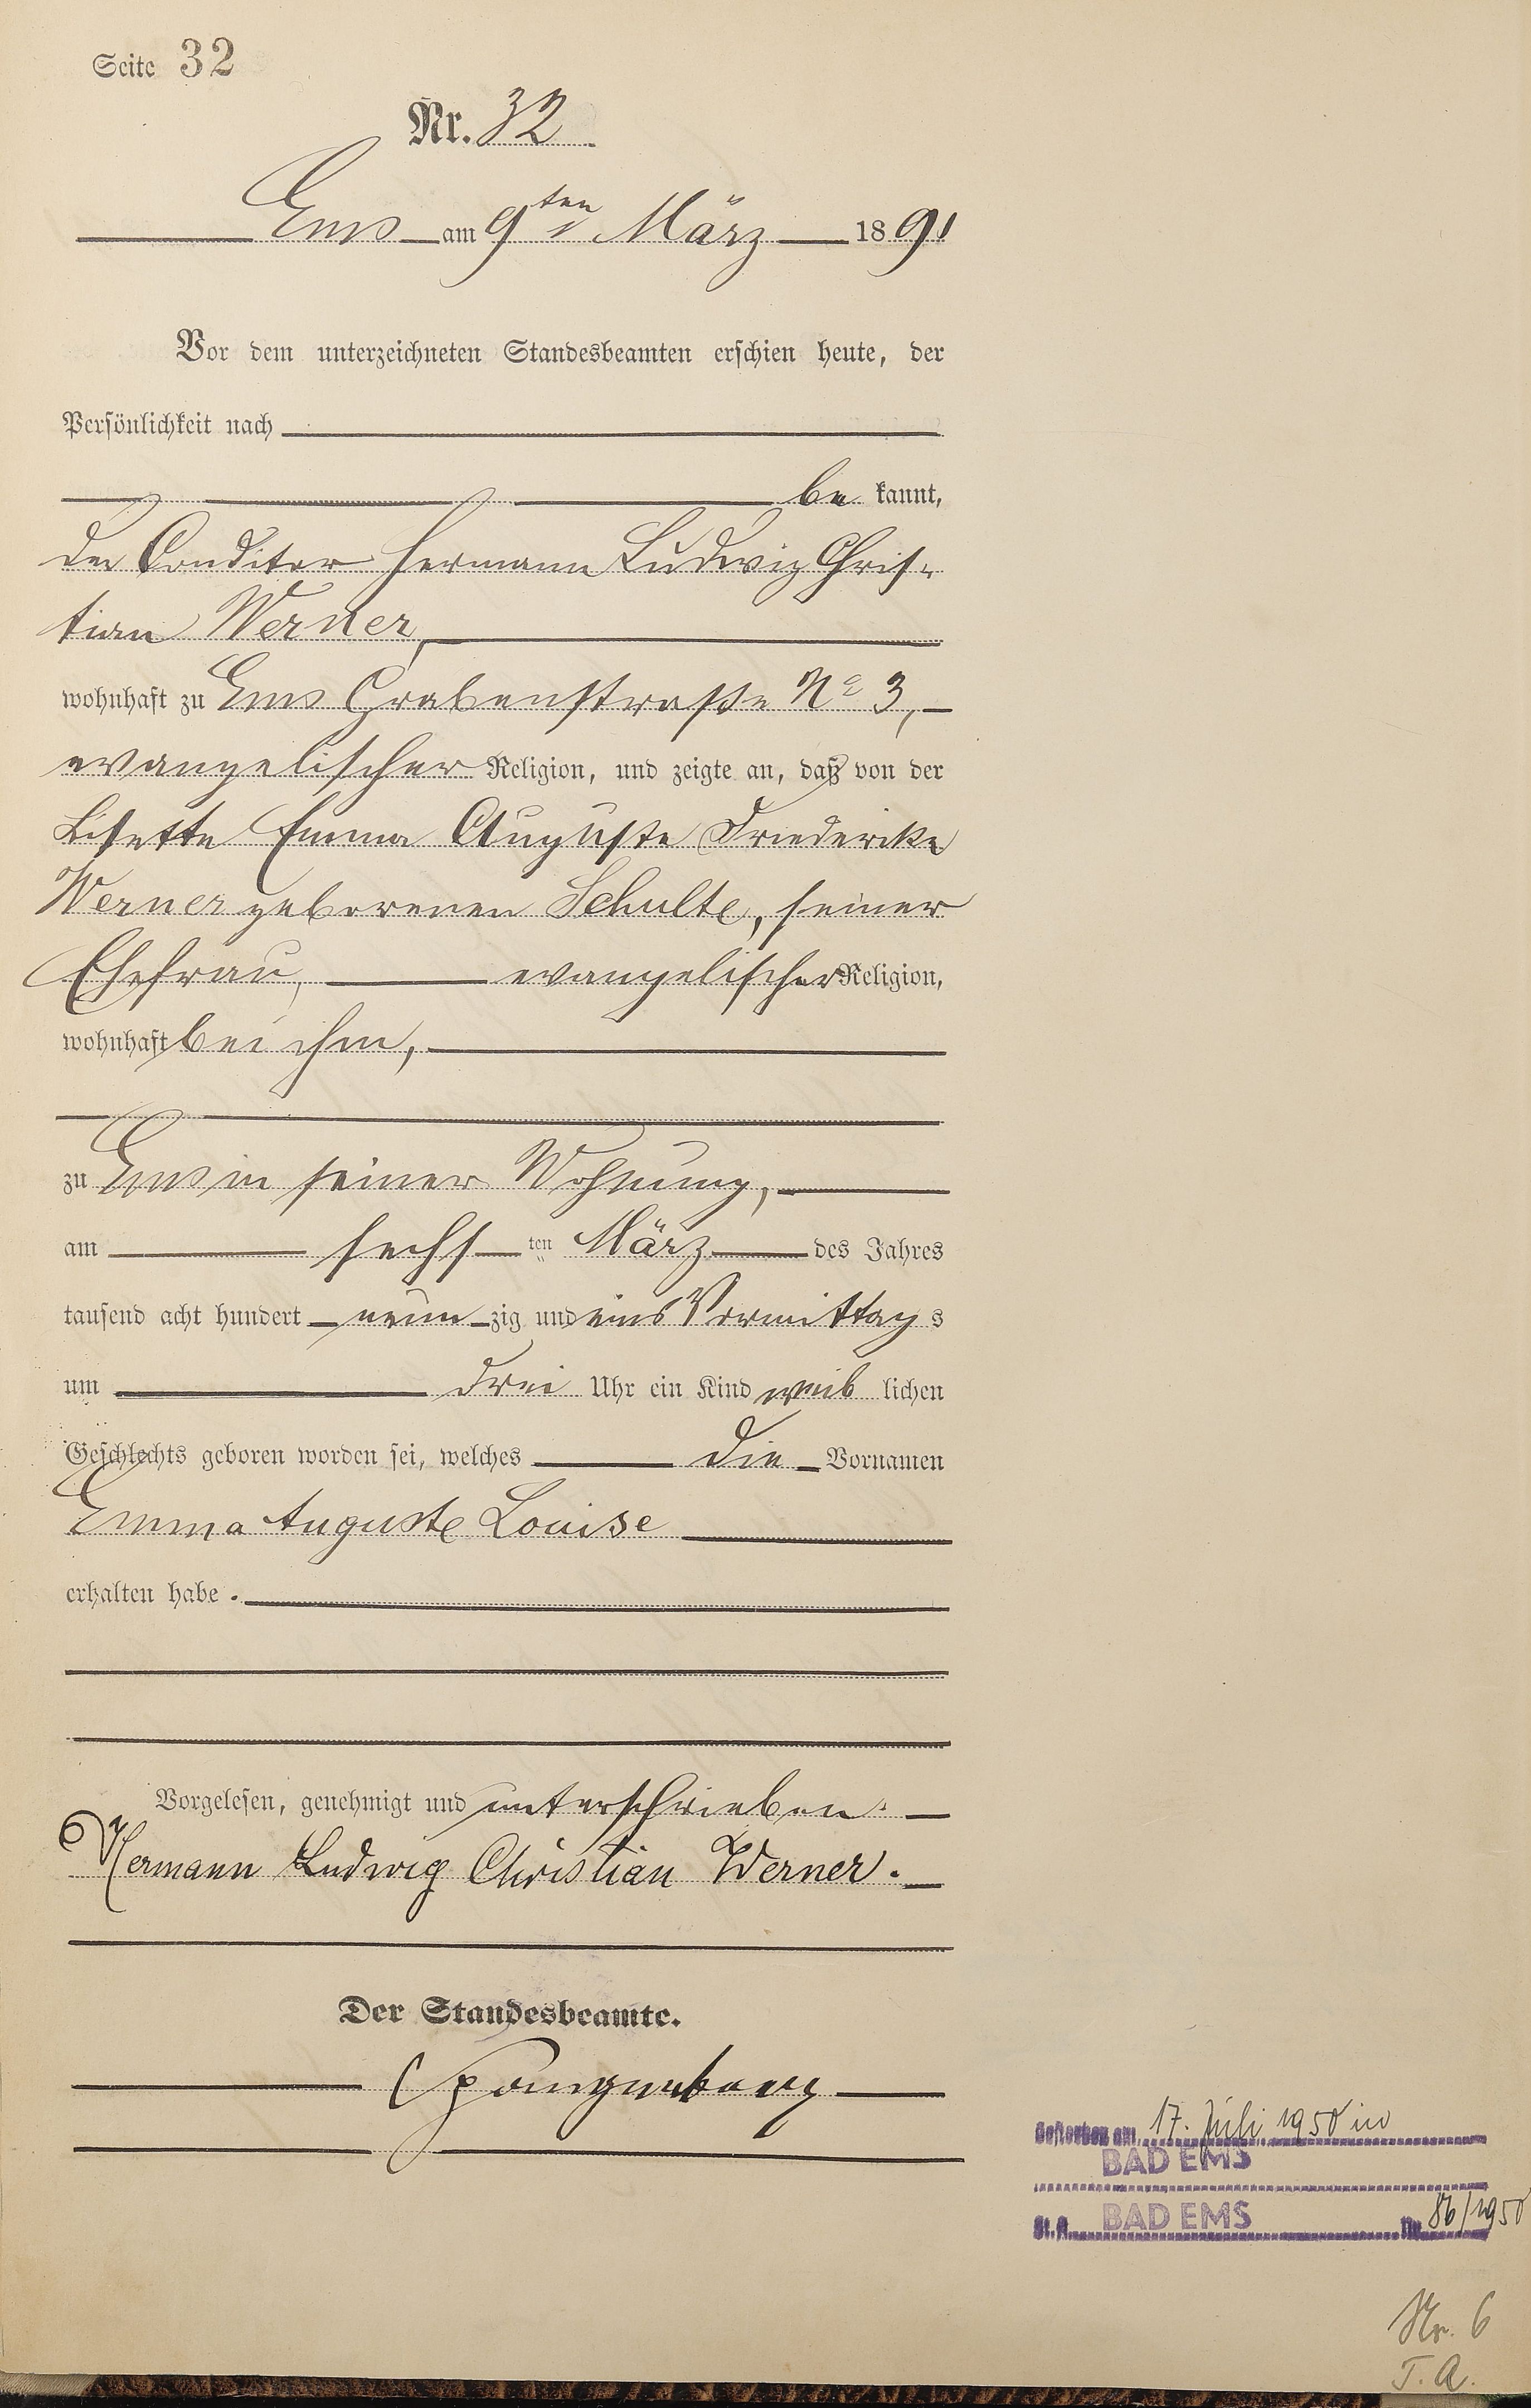 Seite 32
Nr. 32
Ems am 9ten März 1891
Vor dem unterzeichneten Standesbeamten erschien heute, der
Persönlichkeit nach
be kannt,
der Conditor Hermann Ludwig Chris-
tian Werner,
wohnhaft zu Ems Grabenstraße No 3,
evangelischer Religion, und zeigte an, daß von der
Lisette Emma Auguste Friedericke
Werner geborenen Schulte, seiner
Ehefrau, evangelischer Religion,
wohnhaft bei ihm,
zu Ems in seiner Wohnung,
am sechsten März des Jahres
tausend acht hundert neunzig und eins Vormittags
um drei Uhr ein Kind weiblichen
Geschlechts geboren worden sei, welches die Vornamen
Emma Auguste Louise
erhalten habe.
Vorgelesen, genehmigt und unterschrieben.
Hermann Ludwig Christian Werner.
Der Standesbeamte.
Spangenberg
Gestorben am 17. Juli 1950 in
BAD EMS
St.A. BAD EMS Nr. 86/1950
Nr. 6
T. A.